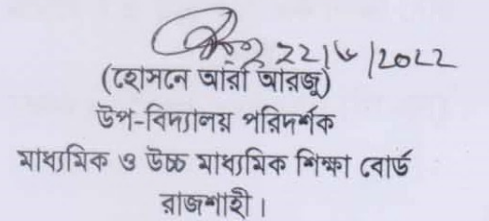 22/৬/2022
(হোসনে আরা আরজু)
উপ-বিদ্যালয় পরিদর্শক
মাধ্যমিক ও উচ্চ মাধ্যমিক শিক্ষা বোর্ড
রাজশাহী।